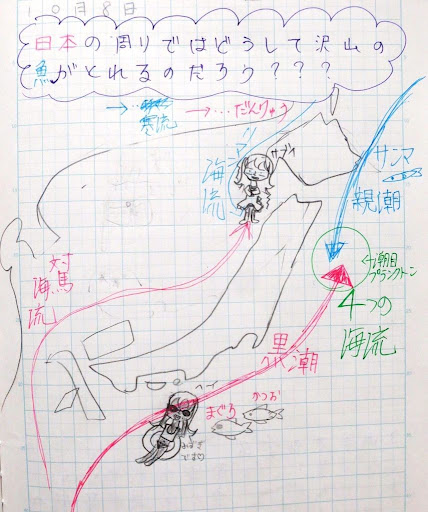 10月8日
日本の周りではどうして沢山の
魚がとれるのだろう???
→…寒流 →…だんりゅう
リマン
海流
サブイ
サンマ
親潮
←潮目
プランクトン
4つの
海流
対馬
海流
黒潮
ヘイ
まぐろ
かつお